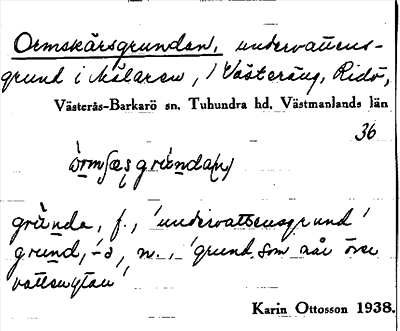 Ormskärsgrunden, undervattens-
grund i Mälaren, / Västeräng, Ridö,
Västerås-Barkarö sn. Tuhundra hd. Västmanlands län
36
grända, f., 'undervattensgrund'
grund, -ə, n., 'grund, som når över
vattenytan'
Karin Ottosson 1938.